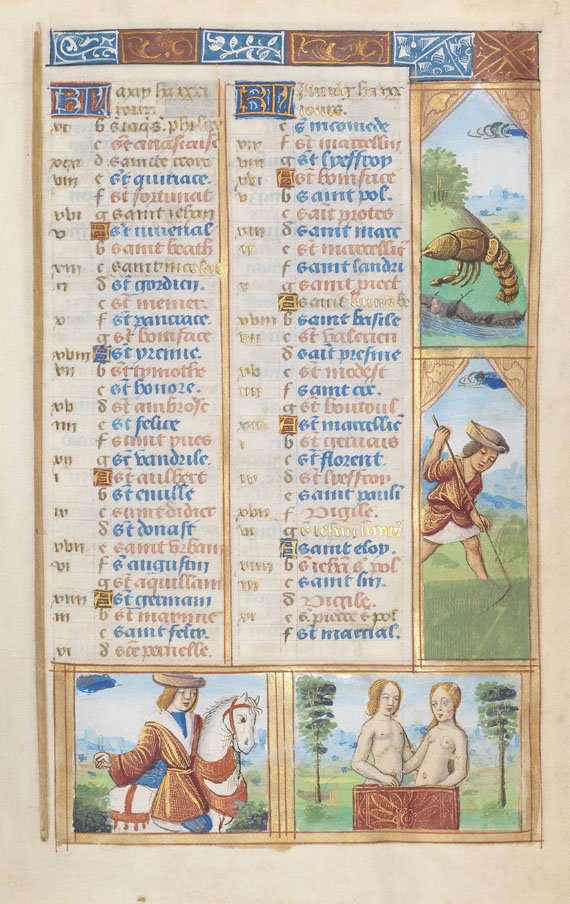 may ha xxxi
iours.
vi b s. iaqs. philipe
c st anastaise
xix d saincte croix
viii e st quiriace.
f st fortunat
xvi g saint iehan
v A st iuuenal
b saint beath
xiii c saint nicolas
ii d st gordien.
e st meiner.
x f st pancrace.
g st boniface
xviii A st yrenne.
vii b st tymothe
c st honore.
xv d st ambrose
iiii e st felice
f saint yues
xii g st vandrile.
i A st ausbert
b st emille
ix c saint didier
d st donast
xvii e saint vrban
vi f st augustin
g st aquillam
xiiii A st germain
iii b st maxime
c saint felix.
xi d sce peronelle.
iuing ha xxx
iours.
e s nicomede
xix f st marcellin
viii g st lyeffroy
xvi A st boniface
v b saint pol.
c sait protes
xiii d saint marc
ii e st marcellie
f saint landri
x g saint priect
A saint barnabe
xviii b saint basile
vii c st valerien
d sait presme
xv e st modest
iiii f saint cir.
g st boutoul
xii A st marcellie
i b st geruais
c st florent.
ix d st lyeffroy
e saint pauli
xvii f Vigile.
vi g s iehan bapte
A saint eloy.
xiiii b s. iehan s. pol
iii c saint lin.
d Vigile.
xi e s. pierre s pol
f st marcial.